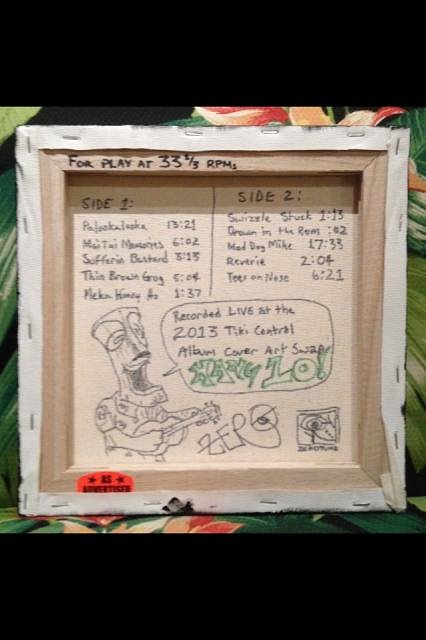 FOR PLAY AT 33 1/3 RPMs
SIDE 1:
Palookalooka 13:21
Mai Tai Memories 6:02
Sufferin Bastard 3:15
Thin Brown Grog 5:04
Meka Honey Ho 1:37
SIDE 2:
Swizzle Stuck 1:13
Drown in the Rums :02
Mad Dog Mike 17:33
Reverie 2:04
Toes on Nose 6:21
Recorded LIVE at the
2013 Tiki Central
Album Cover Art Swap!
HANG 10!
ZERO
★ AS ★
ADVERTISED